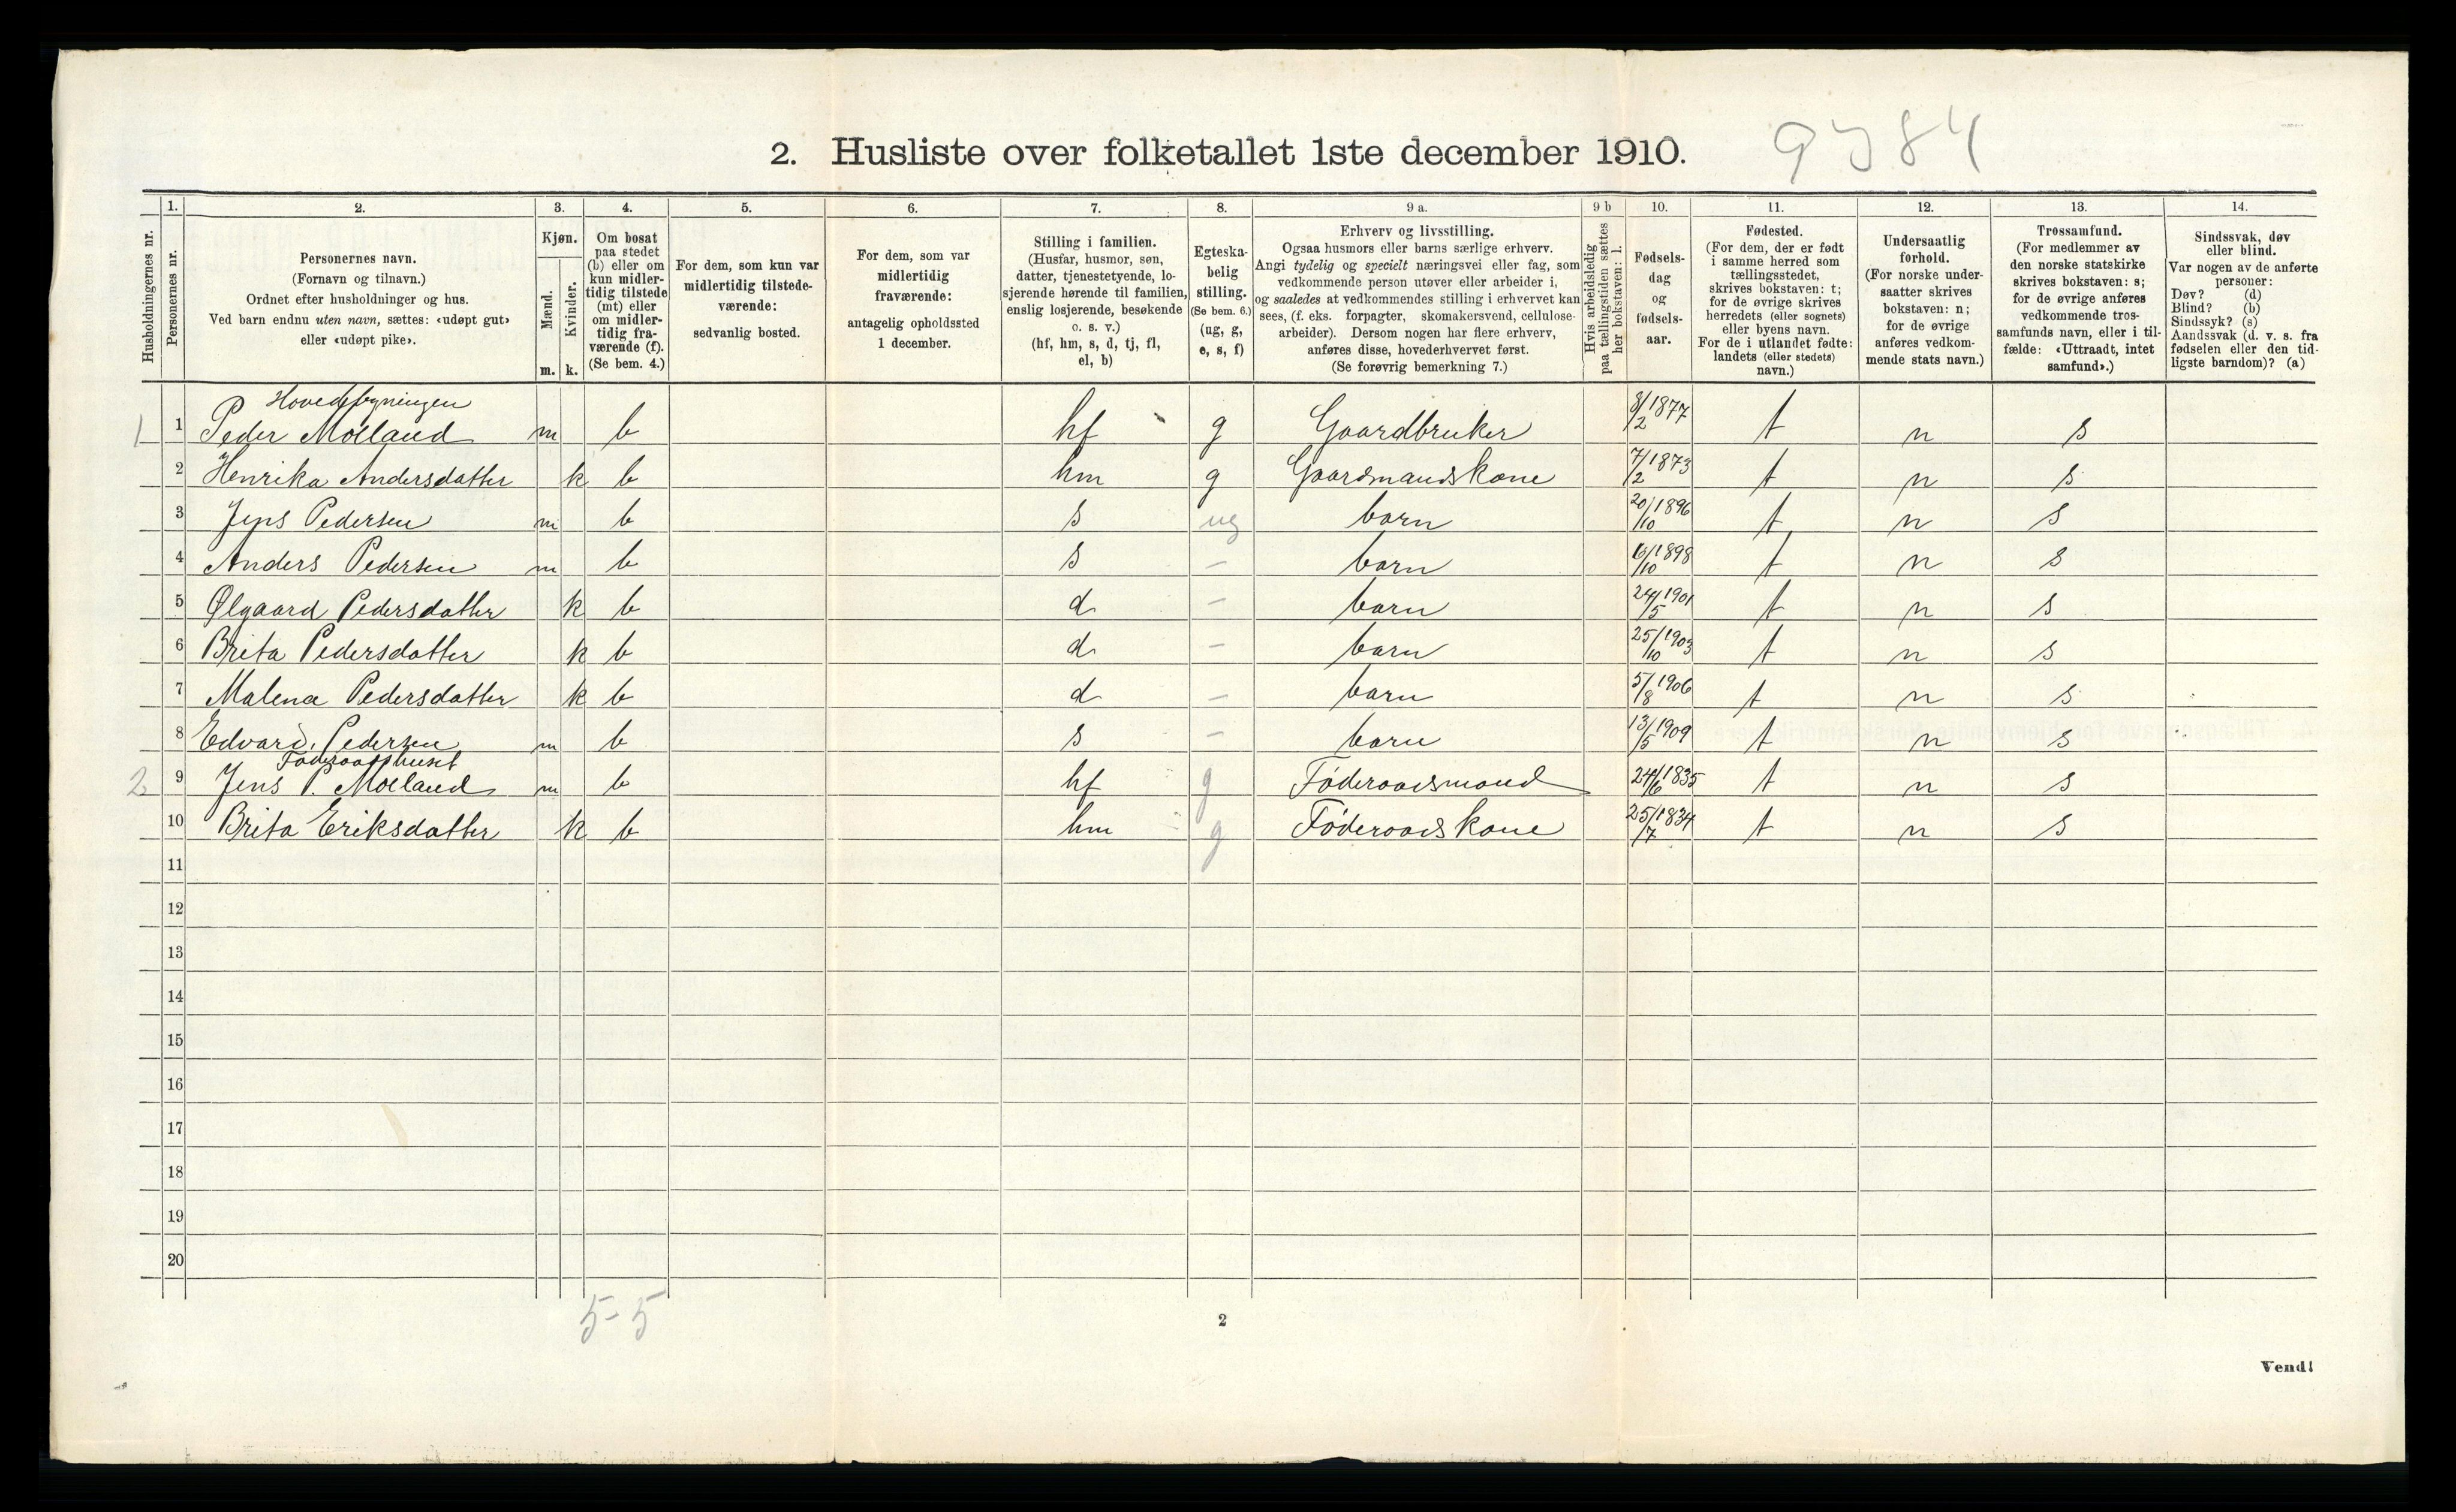 2. Husliste over folketallet 1ste december 1910.
9384
Husholdningernes nr.
1.
Personernes nr.
2.
Personernes navn.
(Fornavn og tilnavn.)
Ordnet efter husholdninger og hus.
Ved barn endnu uten navn, sættes: «udøpt gut»
eller «udøpt pike».
3.
Kjøn.
Mænd.
Kvinder.
m. k.
4.
Om bosat
paa stedet
(b) eller om
kun midler-
tidig tilstede
(mt) eller
om midler-
tidig fra-
værende (f).
(Se bem. 4.)
5.
For dem, som kun var
midlertidig tilstede-
værende:
sedvanlig bosted.
6.
For dem, som var
midlertidig
fraværende:
antagelig opholdssted
1 december.
7.
Stilling i familien.
(Husfar, husmor, søn,
datter, tjenestetyende, lo-
sjerende hørende til familien,
enslig losjerende, besøkende
o. s. v.)
(hf, hm, s, d, tj, fl,
el, b)
8.
Egteska-
belig
stilling.
(Se bem. 6.)
(ug, g,
e, s, f)
9 a.
Erhverv og livsstilling.
Ogsaa husmors eller barns særlige erhverv.
Angi tydelig og specielt næringsvei eller fag, som
vedkommende person utøver eller arbeider i,
og saaledes at vedkommendes stilling i erhvervet kan
sees, (f. eks. forpagter, skomakersvend, cellulose-
arbeider). Dersom nogen har flere erhverv,
anføres disse, hovederhvervet først.
(Se forøvrig bemerkning 7.)
9 b
Hvis arbeidsledig
paa tællingstiden sættes
her bokstaven: l.
10.
Fødsels-
dag
og
fødsels-
aar.
11.
Fødested.
(For dem, der er født
i samme herred som
tællingsstedet,
skrives bokstaven: t;
for de øvrige skrives
herredets (eller sognets)
eller byens navn.
For de i utlandet fødte:
landets (eller stedets)
navn.)
12.
Undersaatlig
forhold.
(For norske under-
saatter skrives
bokstaven: n;
for de øvrige
anføres vedkom-
mende stats navn.)
13.
Trossamfund.
(For medlemmer av
den norske statskirke
skrives bokstaven: s;
for de øvrige anføres
vedkommende tros-
samfunds navn, eller i til-
fælde: «Uttraadt, intet
samfund».)
14.
Sindssvak, døv
eller blind.
Var nogen av de anførte
personer:
Døv? (d)
Blind? (b)
Sindssyk? (s)
Aandssvak (d. v. s. fra
fødselen eller den tid-
ligste barndom)? (a)
Hovedbygningen
1 1 Peder Mølland m b hf g Gaardbruker 8/2 1877 t n s
2 Henrika Andersdatter k b hm g Gaardmandskone 7/2 1873 t n s
3 Jens Pedersen m b s ug barn 20/10 1896 t n s
4 Anders Pedersen m b s – barn 6/10 1898 t n s
5 Ølgaard Pedersdatter k b d – barn 24/5 1901 t n s
6 Brita Pedersdatter k b d – barn 25/10 1903 t n s
7 Malena Pedersdatter k b d – barn 5/8 1906 t n s
8 Edvard Pedersen m b s – barn 13/5 1909 t n s
Føderaadshuset
2 9 Jens P. Mølland m b hf g Føderaadsmand 24/6 1835 t n s
10 Brita Eriksdatter k b hm g Føderaadskone 25/7 1834 t n s
11
12
13
14
15
16
17
18
19
20
5-5
2
Vend!